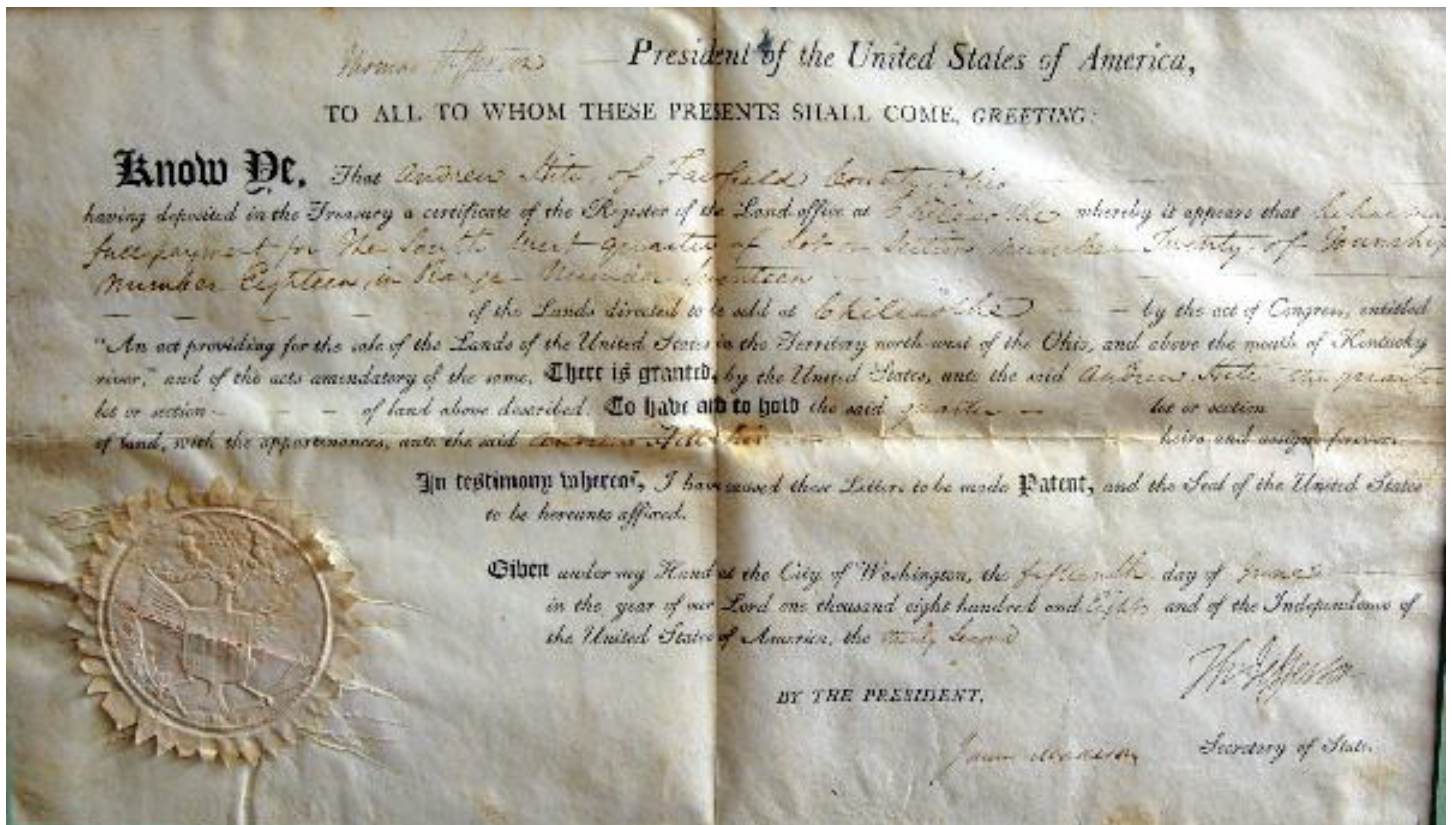 Thomas Jefferson President of the United States of America,
TO ALL TO WHOM THESE PRESENTS SHALL COME, GREETING:
Know Ye, That Andrew Hite of Fairfield County Ohio
having deposited in the Treasury a certificate of the Register of the Land-office at Chilicothe whereby it appears that he has ma
full payment for the South West quarter of Lot or Section number Twenty of Township
number Eighteen in Range Number Seventeen
of the Lands directed to be sold at Chilicothe by the act of Congress, entitled
"An act providing for the sale of the Lands of the United States in the Territory north-west of the Ohio, and above the mouth of Kentucky
river," and of the acts amendatory of the same, There is granted, by the United States, unto the said Andrew Hite the quarter
lot or section of land above described. To have and to hold the said quarter lot or section
of land, with the appurtenances, unto the said Andrew Hite his heirs and assigns forever.
In testimony whereof, I have caused these Letters to be made Patent, and the Seal of the United States
to be hereunto affixed.
Given under my Hand at the City of Washington, the fifteenth day of June
in the year of our Lord one thousand eight hundred and Eight and of the Independence of
the United States of America, the thirty second
Th Jefferson
BY THE PRESIDENT,
James Madison Secretary of State.